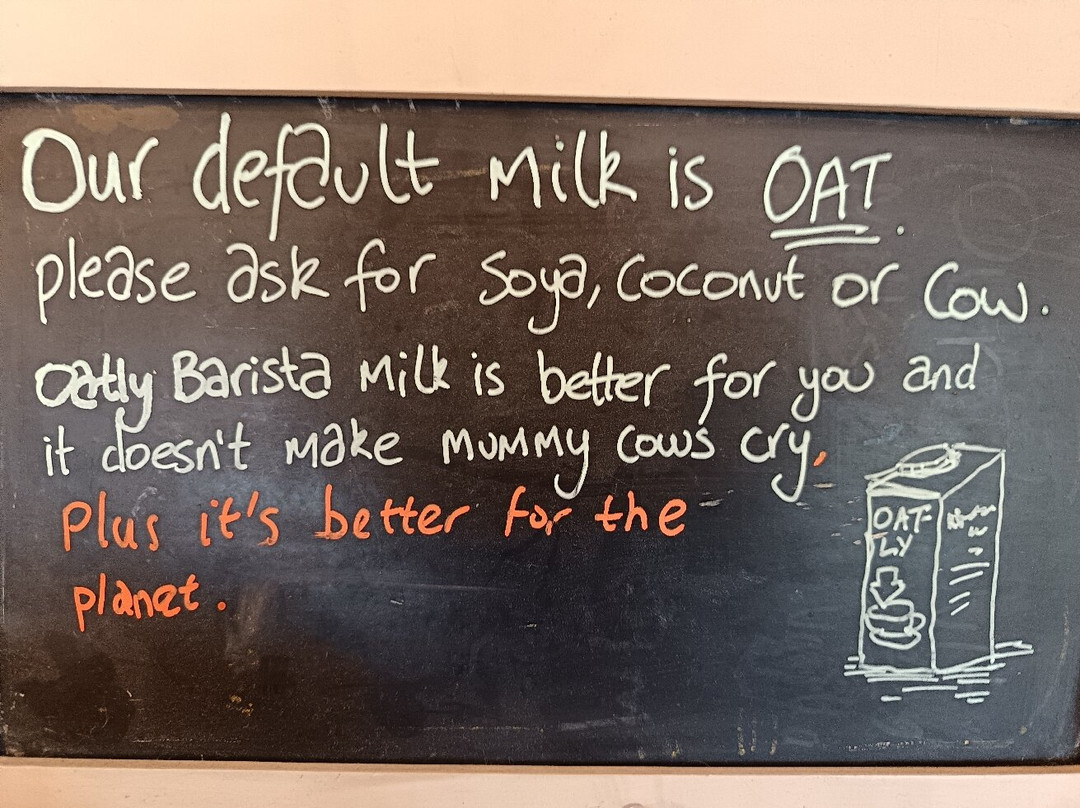 Our default Milk is OAT.
please ask for Soya, Coconut or Cow.
Oatly Barista Milk is better for you and
it doesn't make MUMMY cows cry,
Plus it's better for the
planet.
OAT-
LY